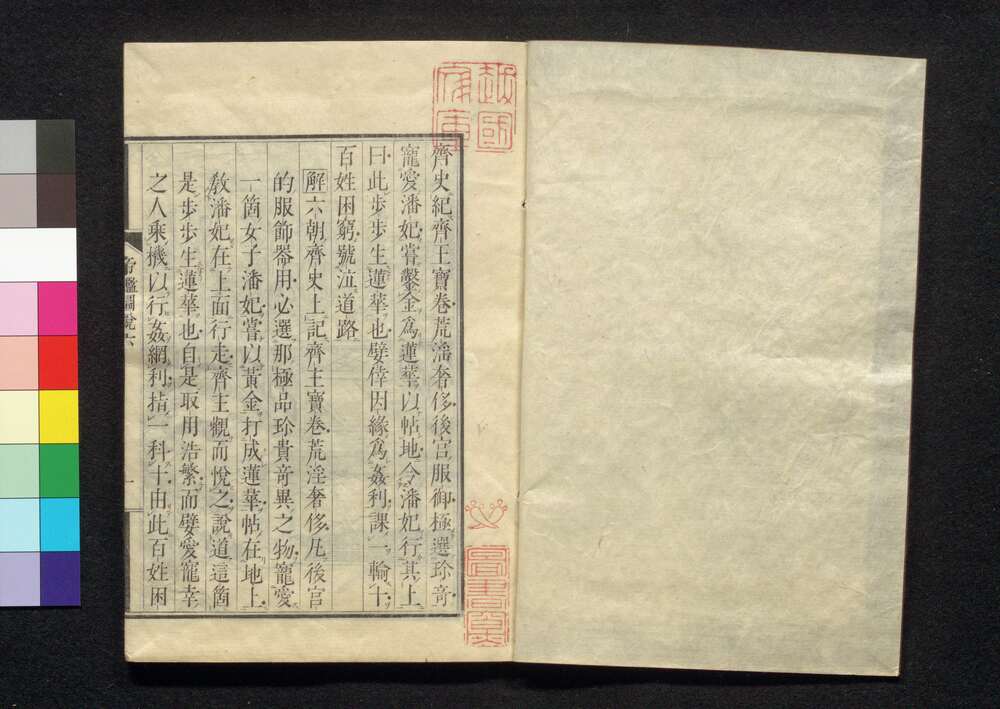 齊史紀齊王寶卷荒淫奢侈後宮服御極選珍竒
寵愛潘妃嘗鑿金爲蓮華以帖地令潘妃行其上
曰此步步生蓮華也嬖倖因緣爲姦利課一輸十
百姓困窮號泣道路
解六朝齊史上記齊主寶卷荒淫奢侈凡後宮
的服飾器用必選那極品珍貴竒異之物寵愛
一箇女子潘妃嘗以黃金打成蓮華帖在地上
教潘妃在上面行走齊主觀而悅之說道這箇
是步步生蓮華也自是取用浩繁而嬖愛寵幸
之人乘機以行姦網利指一科十由此百姓困
帝鑑圖說六